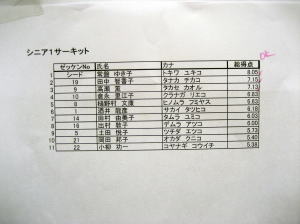 シニア1サーキット
ゼッケンNo 氏名 カナ 総得点
1 シード 常盤 ゆき子 トキワ ユキコ 8.05
2 19 田中 智香子 タナカ チカコ 7.15
3 9 高瀬 薫 タカセ カオル 7.13
4 10 倉永 里江子 クラナガ リエコ 6.83
5 8 樋野村 文庫 ヒノムラ フミヤス 6.63
6 1 酒井 龍彦 サカイ タツヒコ 6.18
7 14 田村 由美子 タムラ ユミコ 6.03
8 16 出村 敦子 デムラ アツコ 6.00
9 5 土田 悦子 ツチダ エツコ 5.73
10 21 岡田 邦子 オカダ クニコ 5.40
11 22 小柳 功一 コヤナギ コウイチ 5.38